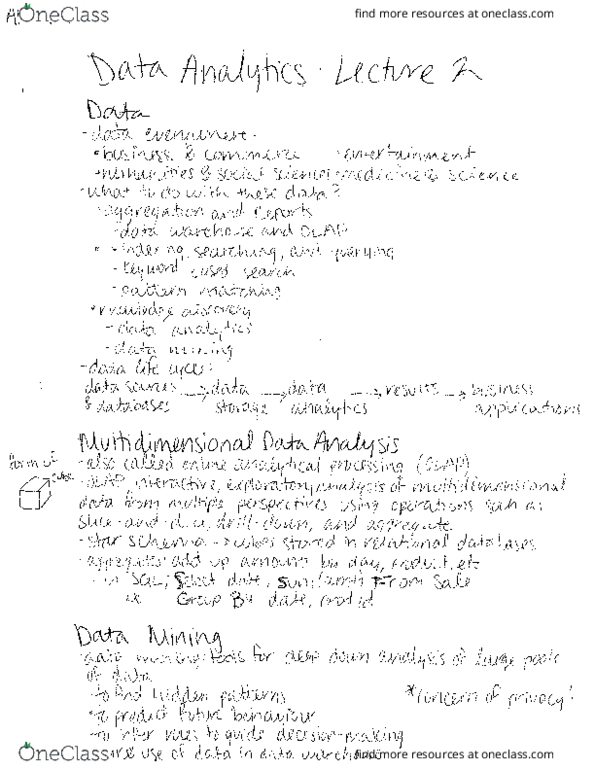 OneClass
find more resources at oneclass.com
Data Analytics - Lecture 2
Data
- data everywhere:
• business & commerce • entertainment
• humanities & social science medicine & science
- what to do with these data?
aggregation and reports
- data warehouse and OLAP
• indexing, searching, and querying
- keyword based search
- pattern matching
• knowledge discovery
- data analytics
- data mining
- data life
data sources → data → data → results → business
& databases storage analytics applications
Multidimensional Data Analysis
form of cube
- also called online analytical processing (OLAP)
- OLAP interactive, exploratory analysis of multidimensional
data from multiple perspectives using operations such as:
slice-and-dice, drill-down, and aggregate
- star schema → cubes stored in relational databases
- aggregates add up amounts by day, product, etc
in SQL, Select date, sum(amt) From Sale
Group By date, prodid
Data Mining
- data mining: tools for deep down analysis of large pools
of data
- to find hidden patterns
*concern of privacy!
- to predict future behaviour
- to infer rules to guide decision-making
use of data in data warehouse
OneClass
find more resources at oneclass.com